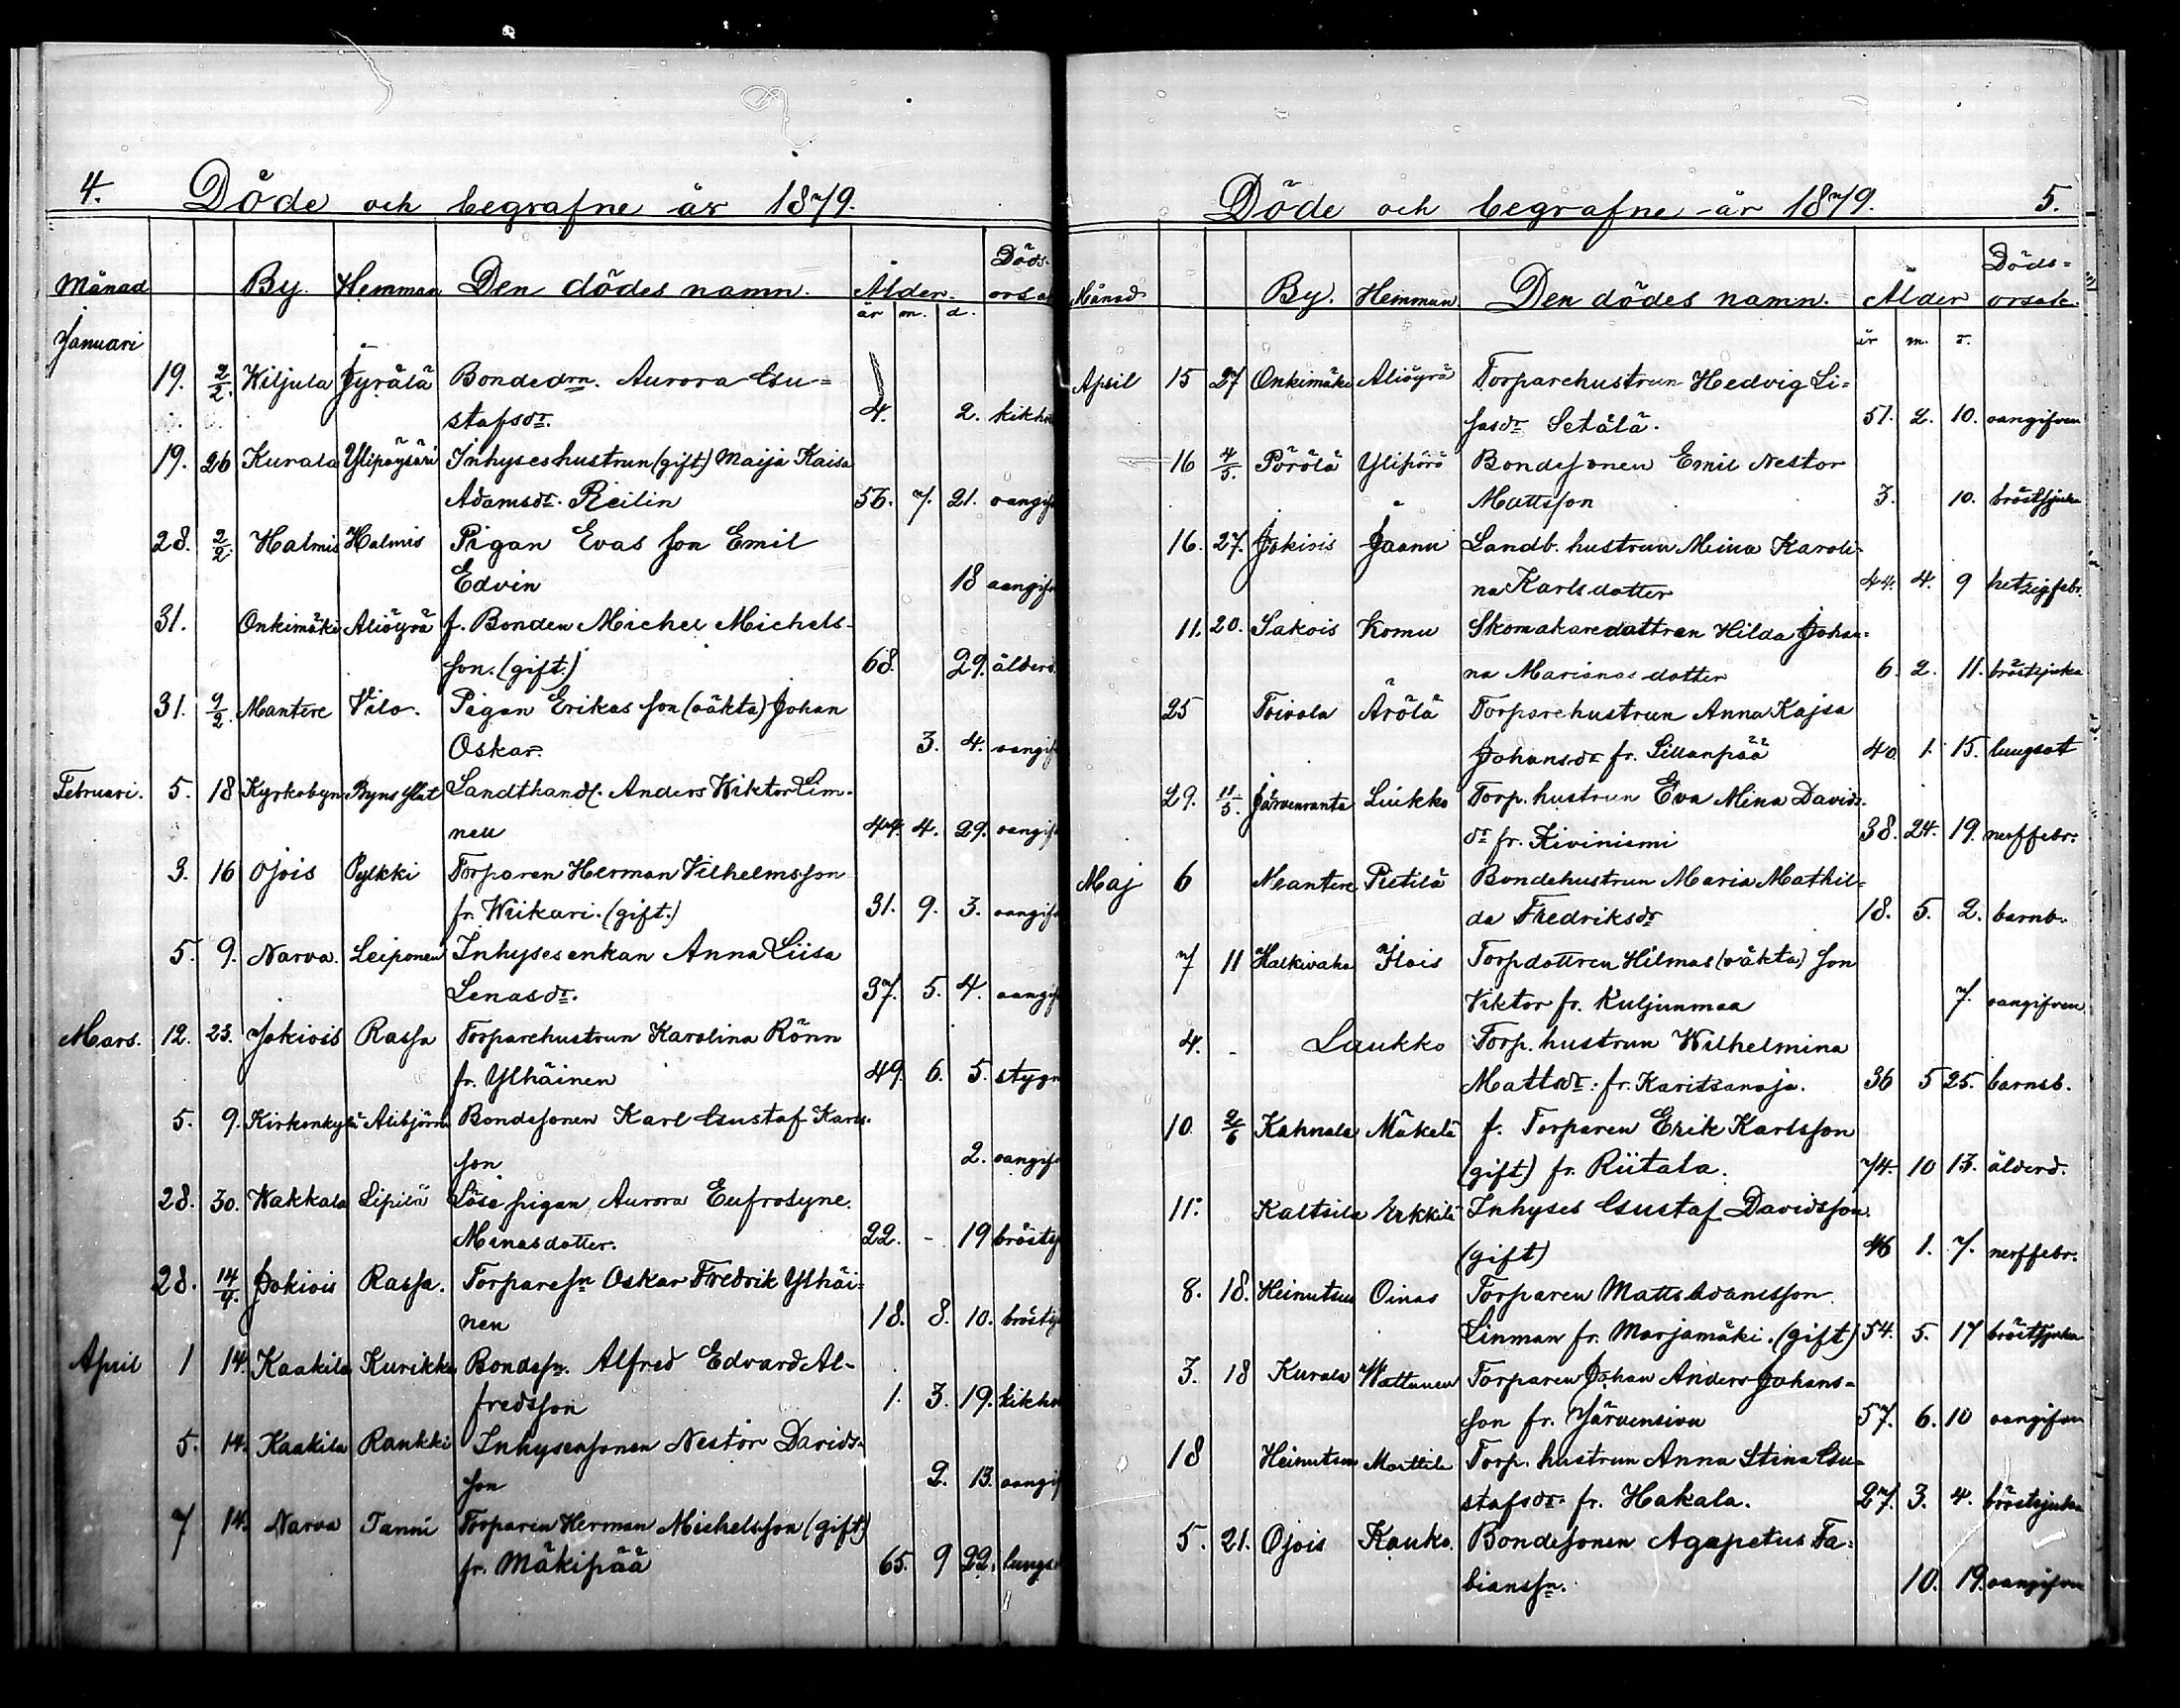 4. Döde och begrafne år 1879.
Månad By. Hemman Den dödes namn. Ålder. Döds-orsa
år m. d.
Januari
19. 2/2. Wiljula Jyrälä Bondedrn. Aurora Gu=
stafsdr. 4. 2. kikho
19. 26 Kurala Ylipöysäri Inhyseshustrun (gift) Maija Kaisa
Adamsdr. Reilin 56. 7. 21. oangif
28. 2/2. Halmis Halmis Pigan Evas son Emil
Edvin 18 oangif
31. Onkimäki Aliöyrä f. Bonden Michel Michels-
son. (gift.) 68. 29. ålderd.
31. 9/2. Mantere Vilo. Pigan Erikas son (oäkta) Johan
Oskar. 3. 4. oangif
Februari. 5. 18 Kyrkobyn Byns Landthandl. Anders Wiktor Lim-
nell 44. 4. 29. oangif
3. 16 Ojois Pylkki Torparen Herman Vilhelmsson
fr. Wiikari. (gift.) 31. 9. 3. oangif
5. 9. Narva. Leiponen Inhysesenkan Anna Liisa
Lenasdr. 37. 5. 4. oangif
Mars. 12. 23. Jokiois Rassa Torparehustrun Karolina Rönn
fr. Ylhäinen 49. 6. 5. stygn
5. 9. Kirkonkylä Alibjörni Bondesonen Karl Gustaf Karls-
son 2. oangif
28. 30. Wakkala Sipilä Löse pigan, Aurora Eufrosyne
Minasdotter. 22. - 19 bröstsj
28. 14/4. Jokiois Rassa. Torparesn Oskar Fredrik Ylhäi=
nen 18. 8. 10. bröstsj
April 1 14. Kaakila Kurikka Bondesn. Alfred Edvard Al-
fredsson 1. 3. 19. kikho
5. 14. Kaakila Rankki Inhysesonen Nestor Davids-
son 2. 13. oangif
7 14. Narva Tanni Torparen Herman Michelsson (gift)
fr. Mäkipää 65. 9 22. lungs
Döde och begrafne år 1879. 5.
Månad By. Hemman. Den dödes namn. Ålder Döds=orsak.
år m. d.
April 15 27 Onkimäki Aliöyrä Torparehustrun Hedvig Li=
sasdr Setälä. 51. 2. 10. oangifven
16 4/5. Pörölä Ylipörö Bondesonen Emil Nestor
Mattsson 3. 10. bröstsjuka
16. 27. Jokiois Jaani Landb. hustrun Meina Karoli-
na Karlsdotter 44. 4. 9 hetzigfebr.
11. 20. Sakois Komu Skomakaredottren Hilda Johan=
na Marianasdotter 6. 2. 11. bröstsjuka
25 Toivola Arölä Torparehustrun Anna Kajsa
Johansdr fr. Sillanpää 40 1. 15. lungsot
29. 11/5. Järvenranta Liukko Torp. hustrun Eva Mina Davids-
dr fr. Kiviniemi 38. 24. 19. nerffebr.
Maj 6 Mantere Pietilä Bondehustrun Maria Mathil=
da Fredriksdr 18. 5. 2. barnb.
7 11 Halkivaha Ilois Torpdottren Hilmas (oäkta) son
Viktor fr. Kuljunmaa 7. oangifven
4. - Laukko Torp. hustrun Wilhelmina
Mattsdr: fr. Karitsanoja. 36 5 25. barnsb.
10 2/6 Kahnala Mäkelä f. Torparen Erik Karlsson
(gift) fr. Riitala. 74. 10 13. ålderd.
11. Kaltsila Erkkilä Inhyses Gustaf Davidsson.
(gift) 46 1. 7. nerffebr.
8. 18. Heinutsuo Oinas Torparen Matts Adamsson
Linman fr. Marjamäki. (gift) 54. 5. 17 bröstsjuka
3. 18 Kurala Wattunen Torparen Johan Anders Johans=
son fr. Järvensivu 57. 6. 10 oangifven
18 Heinutsuo Marttila Torp. hustrun Anna Stina Gu=
stafsdr. fr. Hakala. 27. 3. 4. bröstsjuka
5. 21. Ojois Kauko. Bondesonen Agapetus Fa=
biansson. 10. 19. oangifven